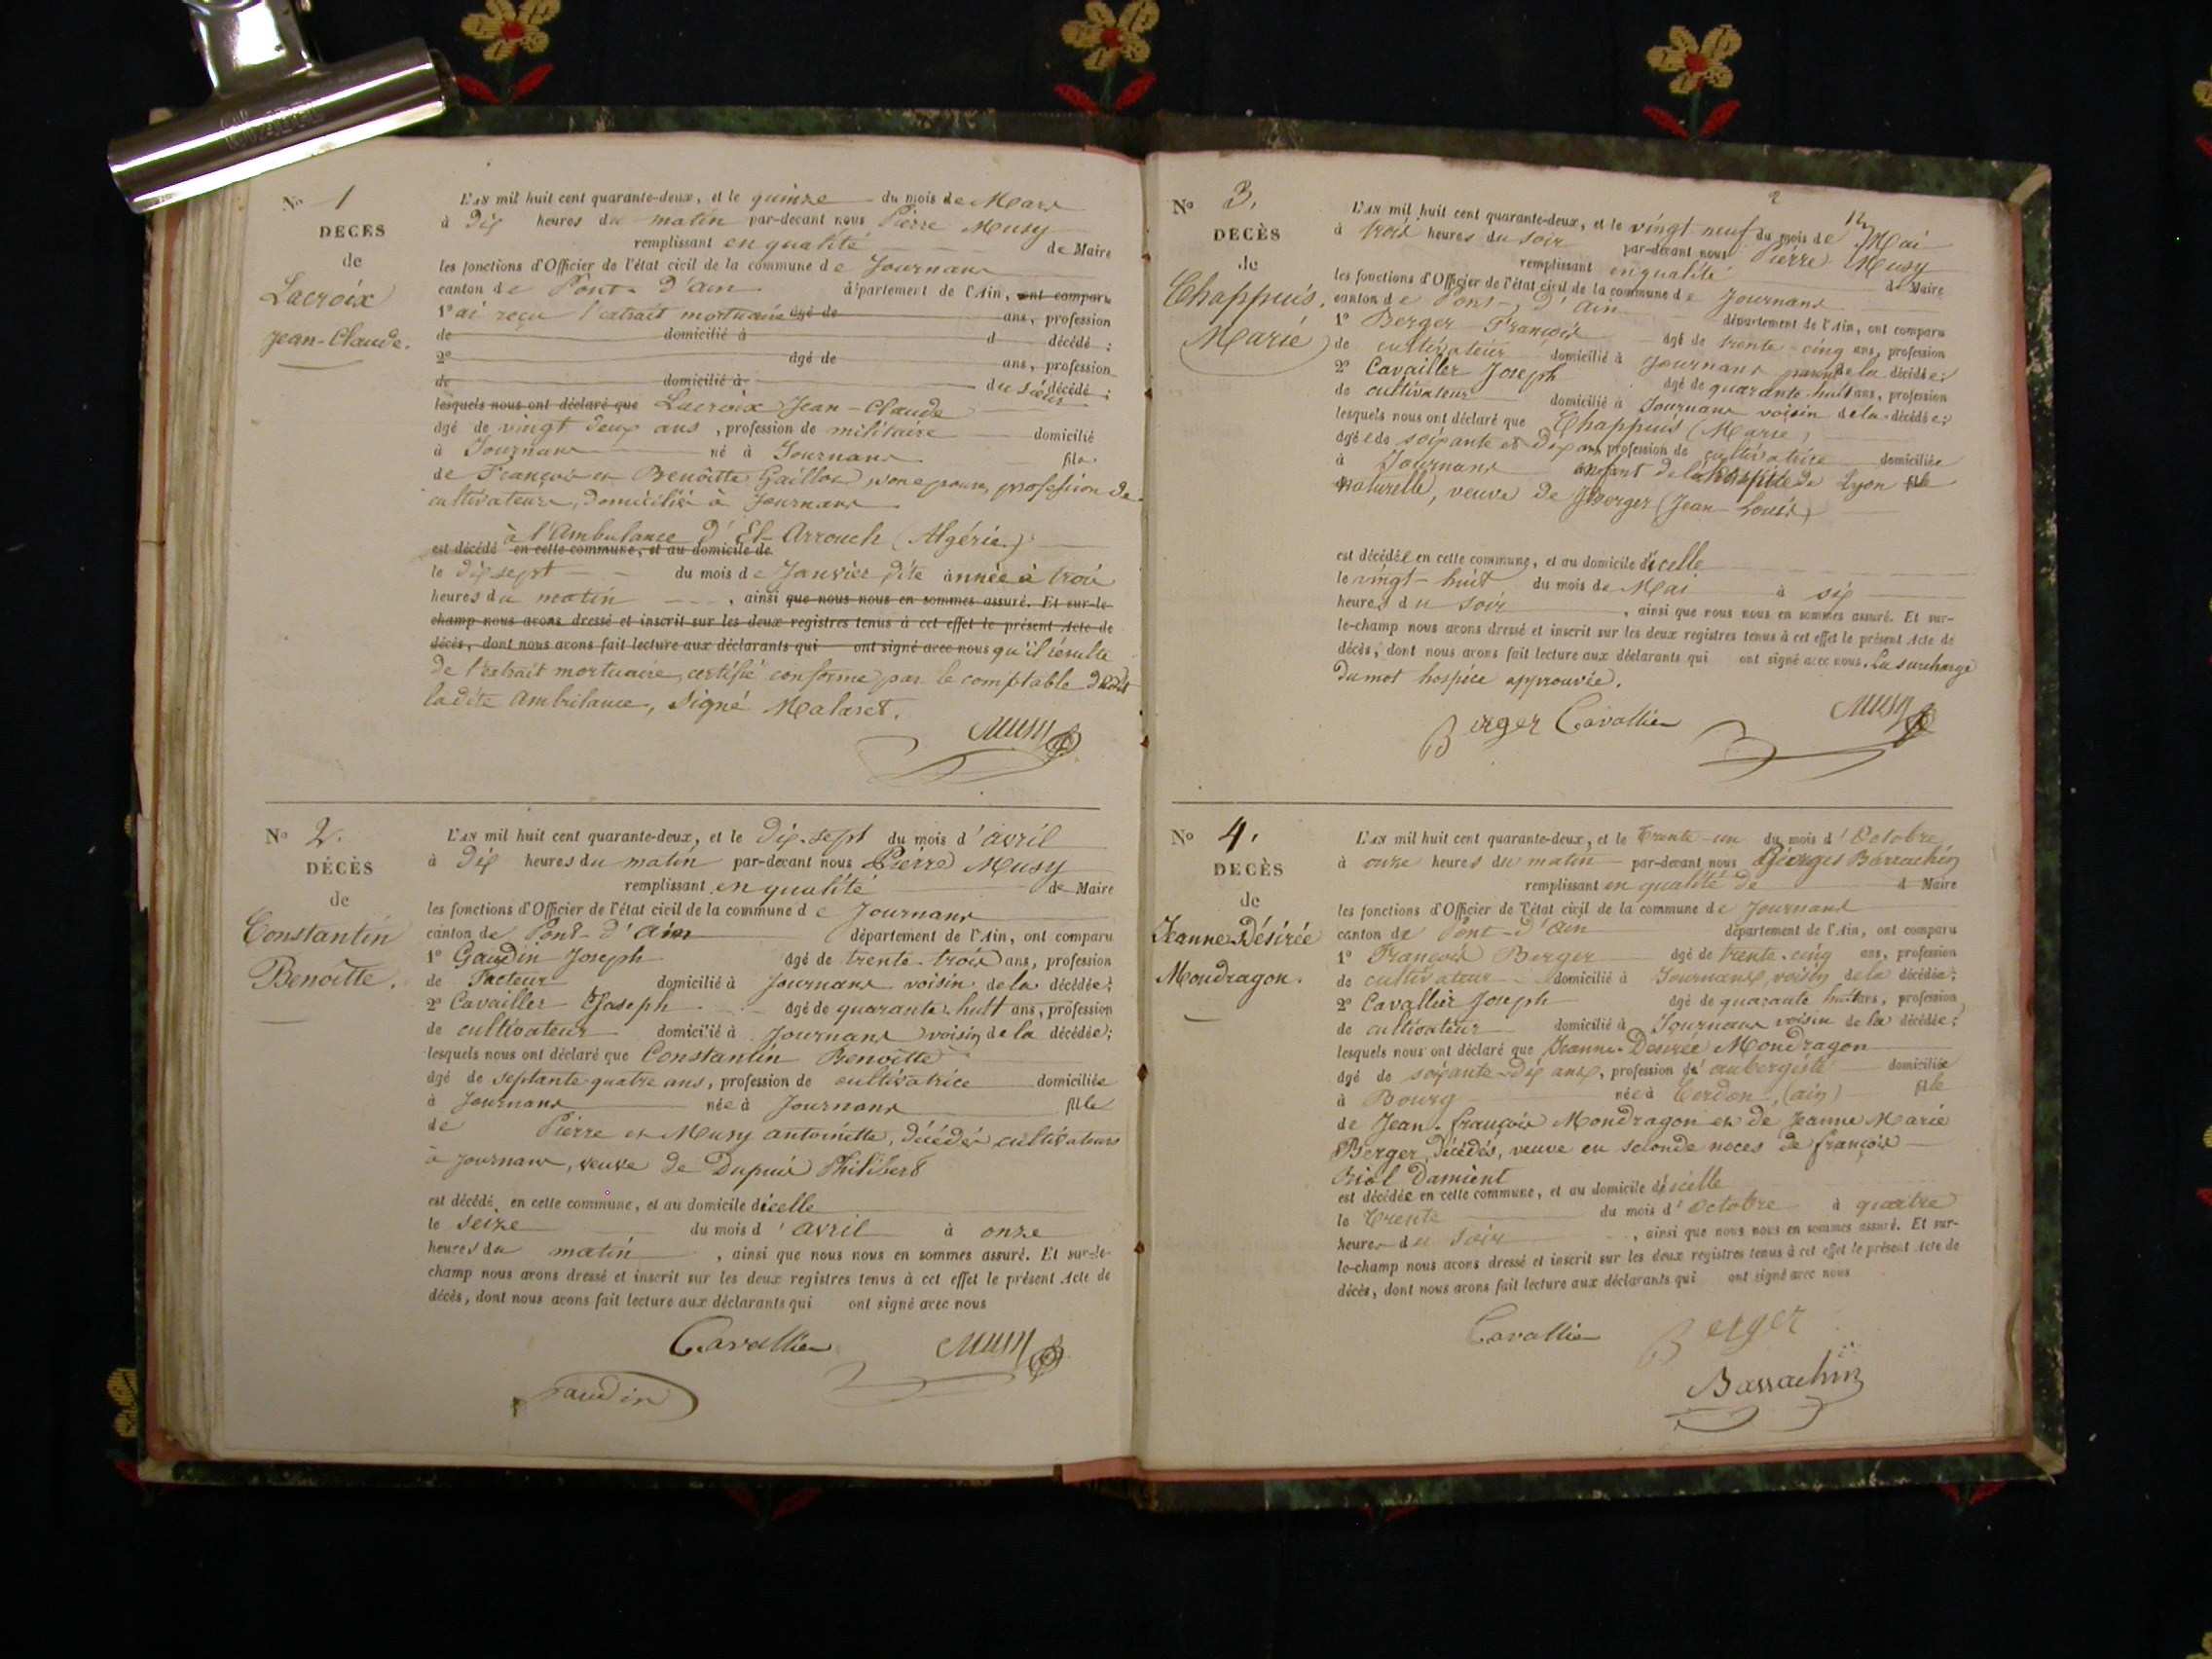 No 1
DÉCÈS
de
Lacroix
Jean-Claude.
L'AN mil huit cent quarante-deux, et le quinze du mois de Mars
à Dix heures du matin par-devant nous Pierre Musy
remplissant en qualité de Maire
les fonctions d'Officier de l'état civil de la commune de Journans
canton de Pont-d'ain département de l'Ain, ont comparu
1º ai reçu l'extrait mortuaire agé de ans, profession
de domicilié à d décédé ;
2º agé de ans, profession
de domicilié à du sieur décédé ;
lesquels nous ont déclaré que Lacroix Jean-Claude
agé de vingt deux ans, profession de militaire domicilié
à Journans né à Journans fils
de François et Benoîtte Gaillon, son epouse, profession de
cultivateurs, domicilié à Journans
à l'Ambulance d'El-Arrouch (Algérie)
est décédé en cette commune, et au domicile de
le dix sept du mois de Janvier dite année à trois
heures du matin, ainsi que nous nous en sommes assuré. Et sur-le-
champ nous avons dressé et inscrit sur les deux registres tenus à cet effet le présent Acte de
décès, dont nous avons fait lecture aux déclarants qui ont signé avec nous qu'il résulte
de l'extrait mortuaire, certifié conforme par le comptable de
ladite Ambulance, signé Malaret.
Musy
No 2.
DÉCÈS
de
Constantin
Benoîtte.
L'AN mil huit cent quarante-deux, et le Dix-sept du mois d'avril
à Dix heures du matin par-devant nous Pierre Musy
remplissant en qualité de Maire
les fonctions d'Officier de l'état civil de la commune de Journans
canton de Pont-d'ain département de l'Ain, ont comparu
1º Gaudin Joseph agé de trente-trois ans, profession
de Facteur domicilié à Journans voisin de la décédée ;
2º Cavailler Joseph agé de quarante-huit ans, profession
de cultivateur domicilié à Journans voisin de la décédée ;
lesquels nous ont déclaré que Constantin Benoîtte
agé de septante quatre ans, profession de cultivatrice domiciliée
à Journans née à Journans fille
de Pierre et Musy antoinette, décédés cultivateurs
à Journans, veuve de Dupuis Philibert
est décédé en cette commune, et au domicile d'icelle
le seize du mois d'avril à onze
heures du matin, ainsi que nous nous en sommes assuré. Et sur-le-
champ nous avons dressé et inscrit sur les deux registres tenus à cet effet le présent Acte de
décès, dont nous avons fait lecture aux déclarants qui ont signé avec nous
Cavallier Musy
Gaudin
2
No 3.
DÉCÈS
de
Chappuis.
Marie
L'AN mil huit cent quarante-deux, et le vingt neuf du mois de Mai
à trois heures du soir par-devant nous Pierre Musy
remplissant en qualité de Maire
les fonctions d'Officier de l'état civil de la commune de Journans
canton de Pont-d'ain département de l'Ain, ont comparu
1º Berger François agé de trente-cinq ans, profession
de cultivateur domicilié à Journans parent de la décédée ;
2º Cavailler Joseph agé de quarante-huit ans, profession
de cultivateur domicilié à Journans voisin de la décédée ;
lesquels nous ont déclaré que Chappuis (Marie)
agée de soixante et dix ans, profession de cultivatrice domiciliée
à Journans enfant de l'hospice de Lyon fille
naturelle, veuve de Berger (Jean Louis)
est décédée en cette commune, et au domicile d'icelle
le vingt-huit du mois de Mai à six
heures du soir, ainsi que nous nous en sommes assuré. Et sur-
le-champ nous avons dressé et inscrit sur les deux registres tenus à cet effet le présent Acte de
décès, dont nous avons fait lecture aux déclarants qui ont signé avec nous. La surcharge
du mot hospice approuvée.
Berger Cavallier Musy
No 4.
DÉCÈS
de
Jeanne-Désirée
Mondragon.
L'AN mil huit cent quarante-deux, et le trente-un du mois d'Octobre
à onze heures du matin par-devant nous Georges Barrachin
remplissant en qualité de d Maire
les fonctions d'Officier de l'état civil de la commune de Journans
canton de Pont-d'ain département de l'Ain, ont comparu
1º François Berger agé de trente-cinq ans, profession
de cultivateur domicilié à Journans, voisin de la décédée ;
2º Cavallier Joseph agé de quarante huit ans, profession
de cultivateur domicilié à Journans voisin de la décédée ;
lesquels nous ont déclaré que Jeanne-Desirée Mondragon
agé de soixante-dix ans, profession d'aubergiste domiciliée
à Bourg née à Cerdon, (ain) fille
de Jean-françois Mondragon et de Jeanne Marie
Berger, décédés, veuve en seconde noces de françois
Riol Damient
est décédée en cette commune, et au domicile d'icelle
le trente du mois d'Octobre à quatre
heures du soir, ainsi que nous nous en sommes assuré. Et sur-
le-champ nous avons dressé et inscrit sur les deux registres tenus à cet effet le présent Acte de
décès, dont nous avons fait lecture aux déclarants qui ont signé avec nous
Cavallier Berger
Barrachin